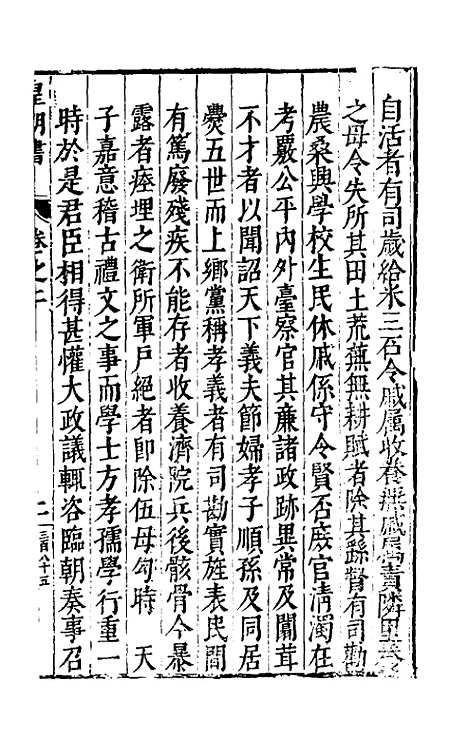 自活者有司歲給米三石令戚属收養無戚属責隣里養
之毋令失所其田土荒蕪無耕賦者除其繇督有司勸
農桑興學校生民休戚係守令賢否廢官清濁在
考覈公平内外臺察官其廉諸政跡異常及闒茸
不才者以聞詔天下義夫節婦孝子順孫及同居
㸑五世而上鄉黨稱孝義者有司勘實旌表民間
有篤廢殘疾不能存者收養濟院兵後骸骨今暴
露者瘞埋之衛所軍戶絕者即除伍毋勾時 天
子嘉意稽古禮文之事而學士方孝孺學行重一
時於是君臣相得甚懽大政議輒咨臨朝奏事召
皇明書 卷之二 二